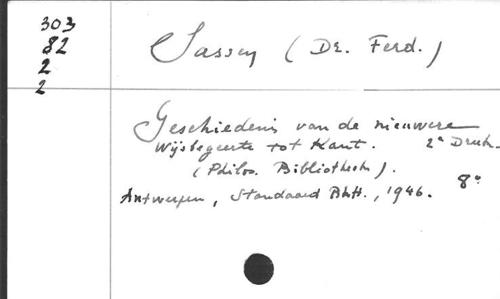 303
82
2
2
Sassen (Dr. Ferd.)
Geschiedenis van de nieuwere
Wijsbegeerte tot Kant. 2e Druk.
(Philos. Bibliotheek).
Antwerpen, Standaard Bkh., 1946. 8°